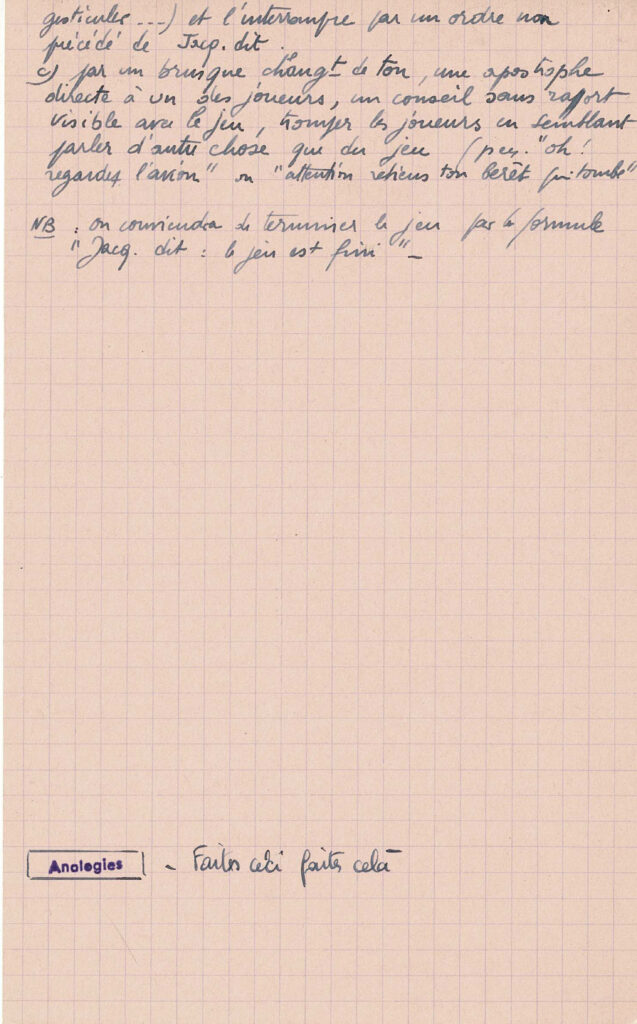 gesticuler ---) et l'interrompre par un ordre non
précédé de Jacq. dit.
c) par un brusque changt de ton, une apostrophe
directe à un des joueurs, un conseil sans rapport
visible avec le jeu, tromper les joueurs en semblant
parler d'autre chose que du jeu (p ex. "oh!
regardez l'avion" ou "attention retiens ton berêt qui tombe"
NB : on conviendra de terminer le jeu par la formule
"Jacq. dit : le jeu est fini" -
Analogies - Faites ceci faites cela